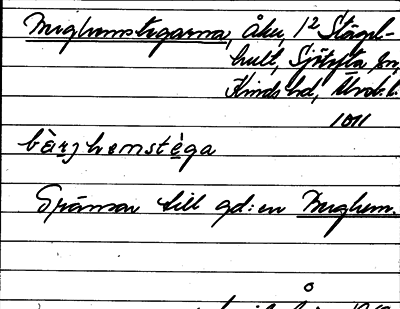 Berghemstegarna, åker, 1² Stågel-
hult, Sjötofta sn,
Kinds hd, Älvsb. l.
1011
bèrjhemstèga
Gränsar till gd:en Berghem.